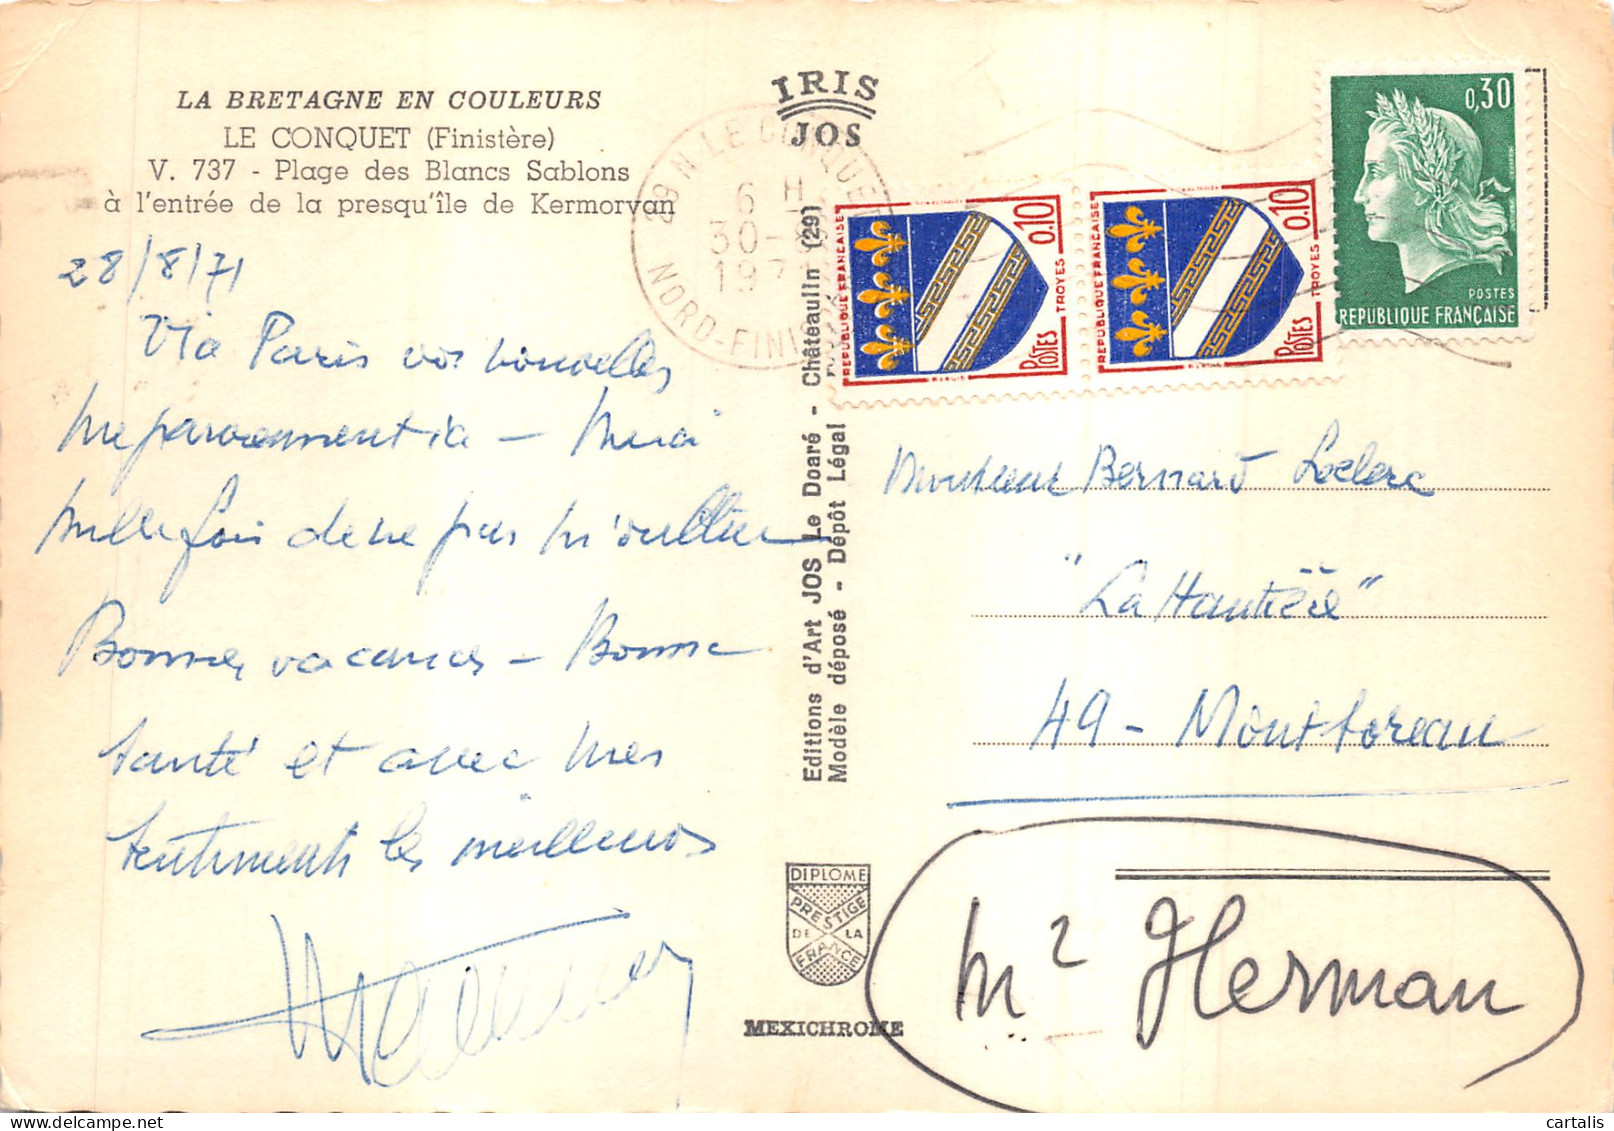 LA BRETAGNE EN COULEURS
LE CONQUET (Finistère)
V. 737 - Plage des Blancs Sablons
à l'entrée de la presqu'île de Kermorvan
28/8/71
Via Paris vos nouvelles
me parviennent ici - Merci
mille fois de ne pas m'oublier
Bonnes vacances - Bonne
santé et avec mes
sentiments les meilleurs
IRIS
JOS
29 N LE CONQUET
6 H
30-8
197
NORD-FINISTÈRE
Editions d'Art JOS Le Doaré - Châteaulin (29)
Modèle déposé - Dépôt Légal
REPUBLIQUE FRANÇAISE
0,10
TROYES
POSTES
REPUBLIQUE FRANÇAISE
0,10
TROYES
POSTES
0,30
POSTES
REPUBLIQUE FRANÇAISE
Monsieur Bernard Leclerc
"La Hautière"
49 - Montsoreau
DIPLOME
PRESTIGE
DE LA
FRANCE
MEXICHROME
Mr Herman
cartalis